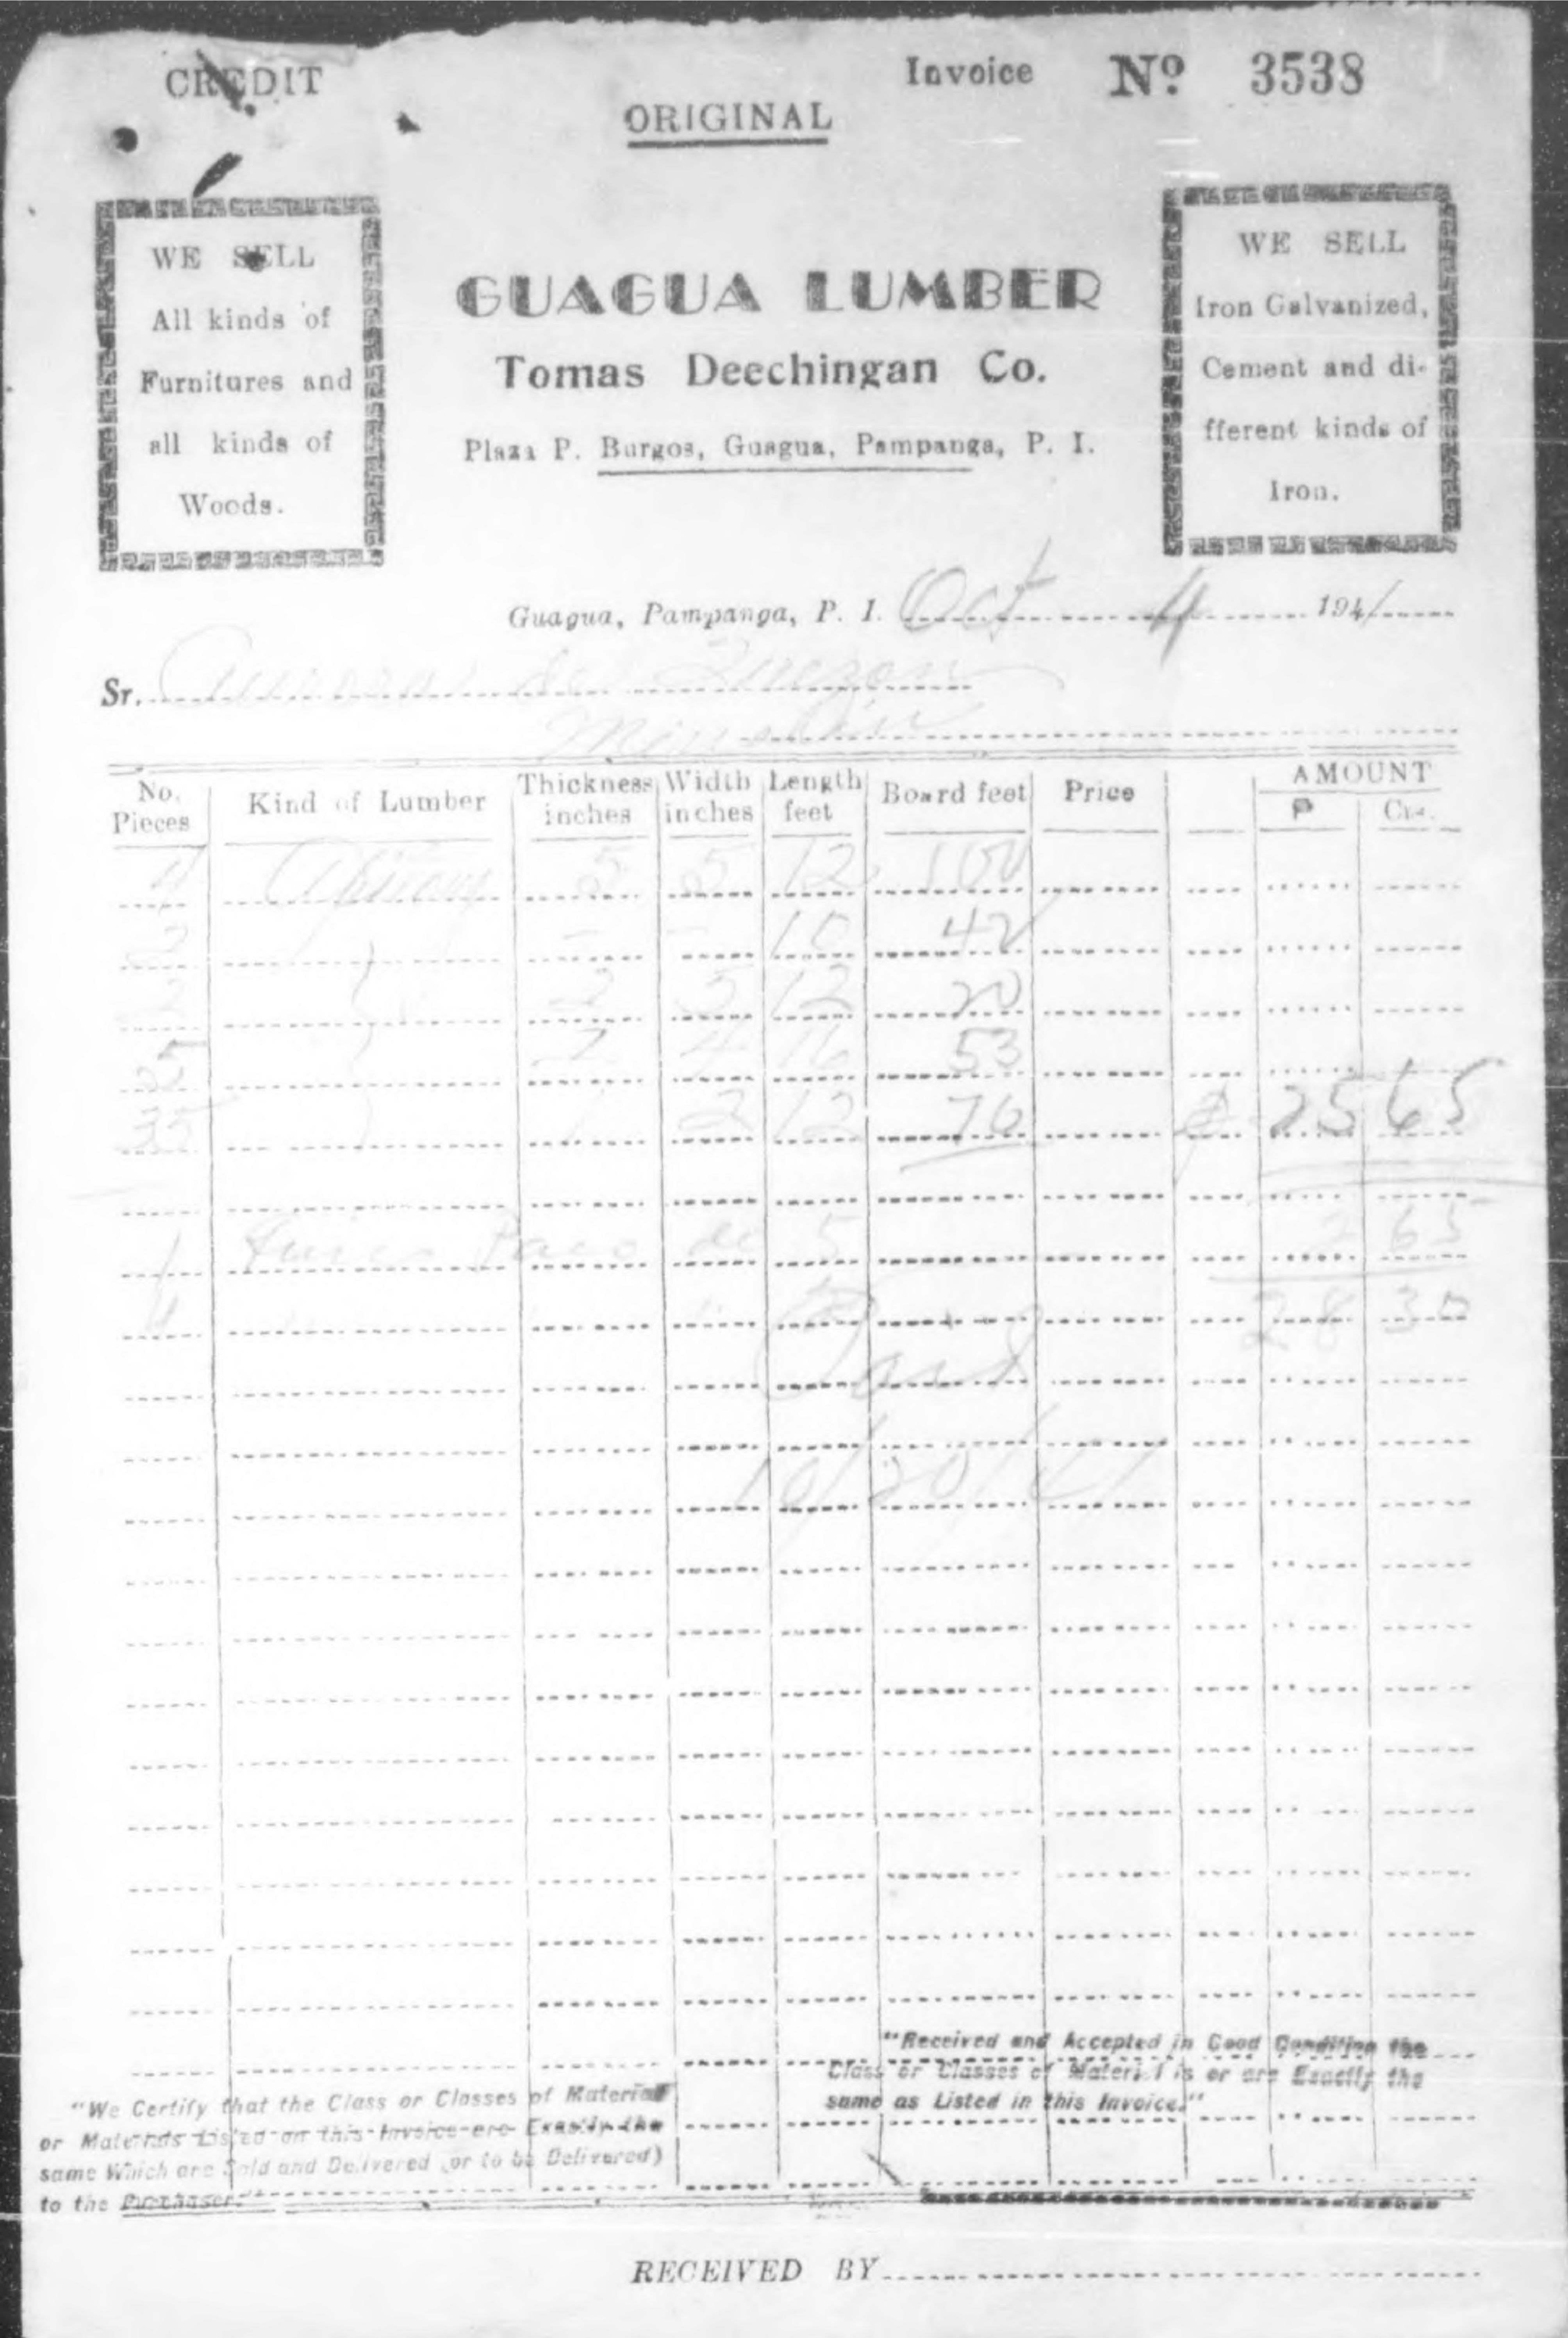 CREDIT
Invoice Nº 3538
ORIGINAL
WE SELL
All kinds of
Furnitures and
all kinds of
Woods.
GUAGUA LUMBER
Tomas Deechingan Co.
Plaza P. Burgos, Guagua, Pampanga, P. I.
WE SELL
Iron Galvanized,
Cement and di-
fferent kinds of
Iron.
Guagua, Pampanga, P. I. Oct 4 1941
Sr. Aurora de Quezon
No. Pieces Kind of Lumber Thickness inches Width inches Length feet Board feet Price AMOUNT ₱ Cts.
4 Apitong 5 5 12 100
2 10 42
2 2 5 12 20
5 2 4 16 53
1 2 12 76 25 65
1 de 5 2 65
4 28 30
Paid
10/20/41
"Received and Accepted in Good Condition the
Class or Classes of Material is or are Exactly the
same as Listed in this Invoice."
"We Certify that the Class or Classes of Material
or Materials Listed on this Invoice are Exactly the
same Which are Sold and Delivered (or to be Delivered)
to the Purchaser."
RECEIVED BY